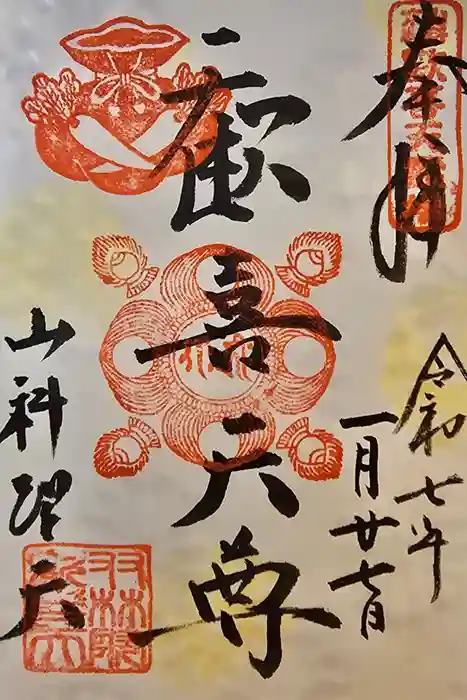 奉拝
令和七年
一月廿七日
歓喜天尊
山科聖天